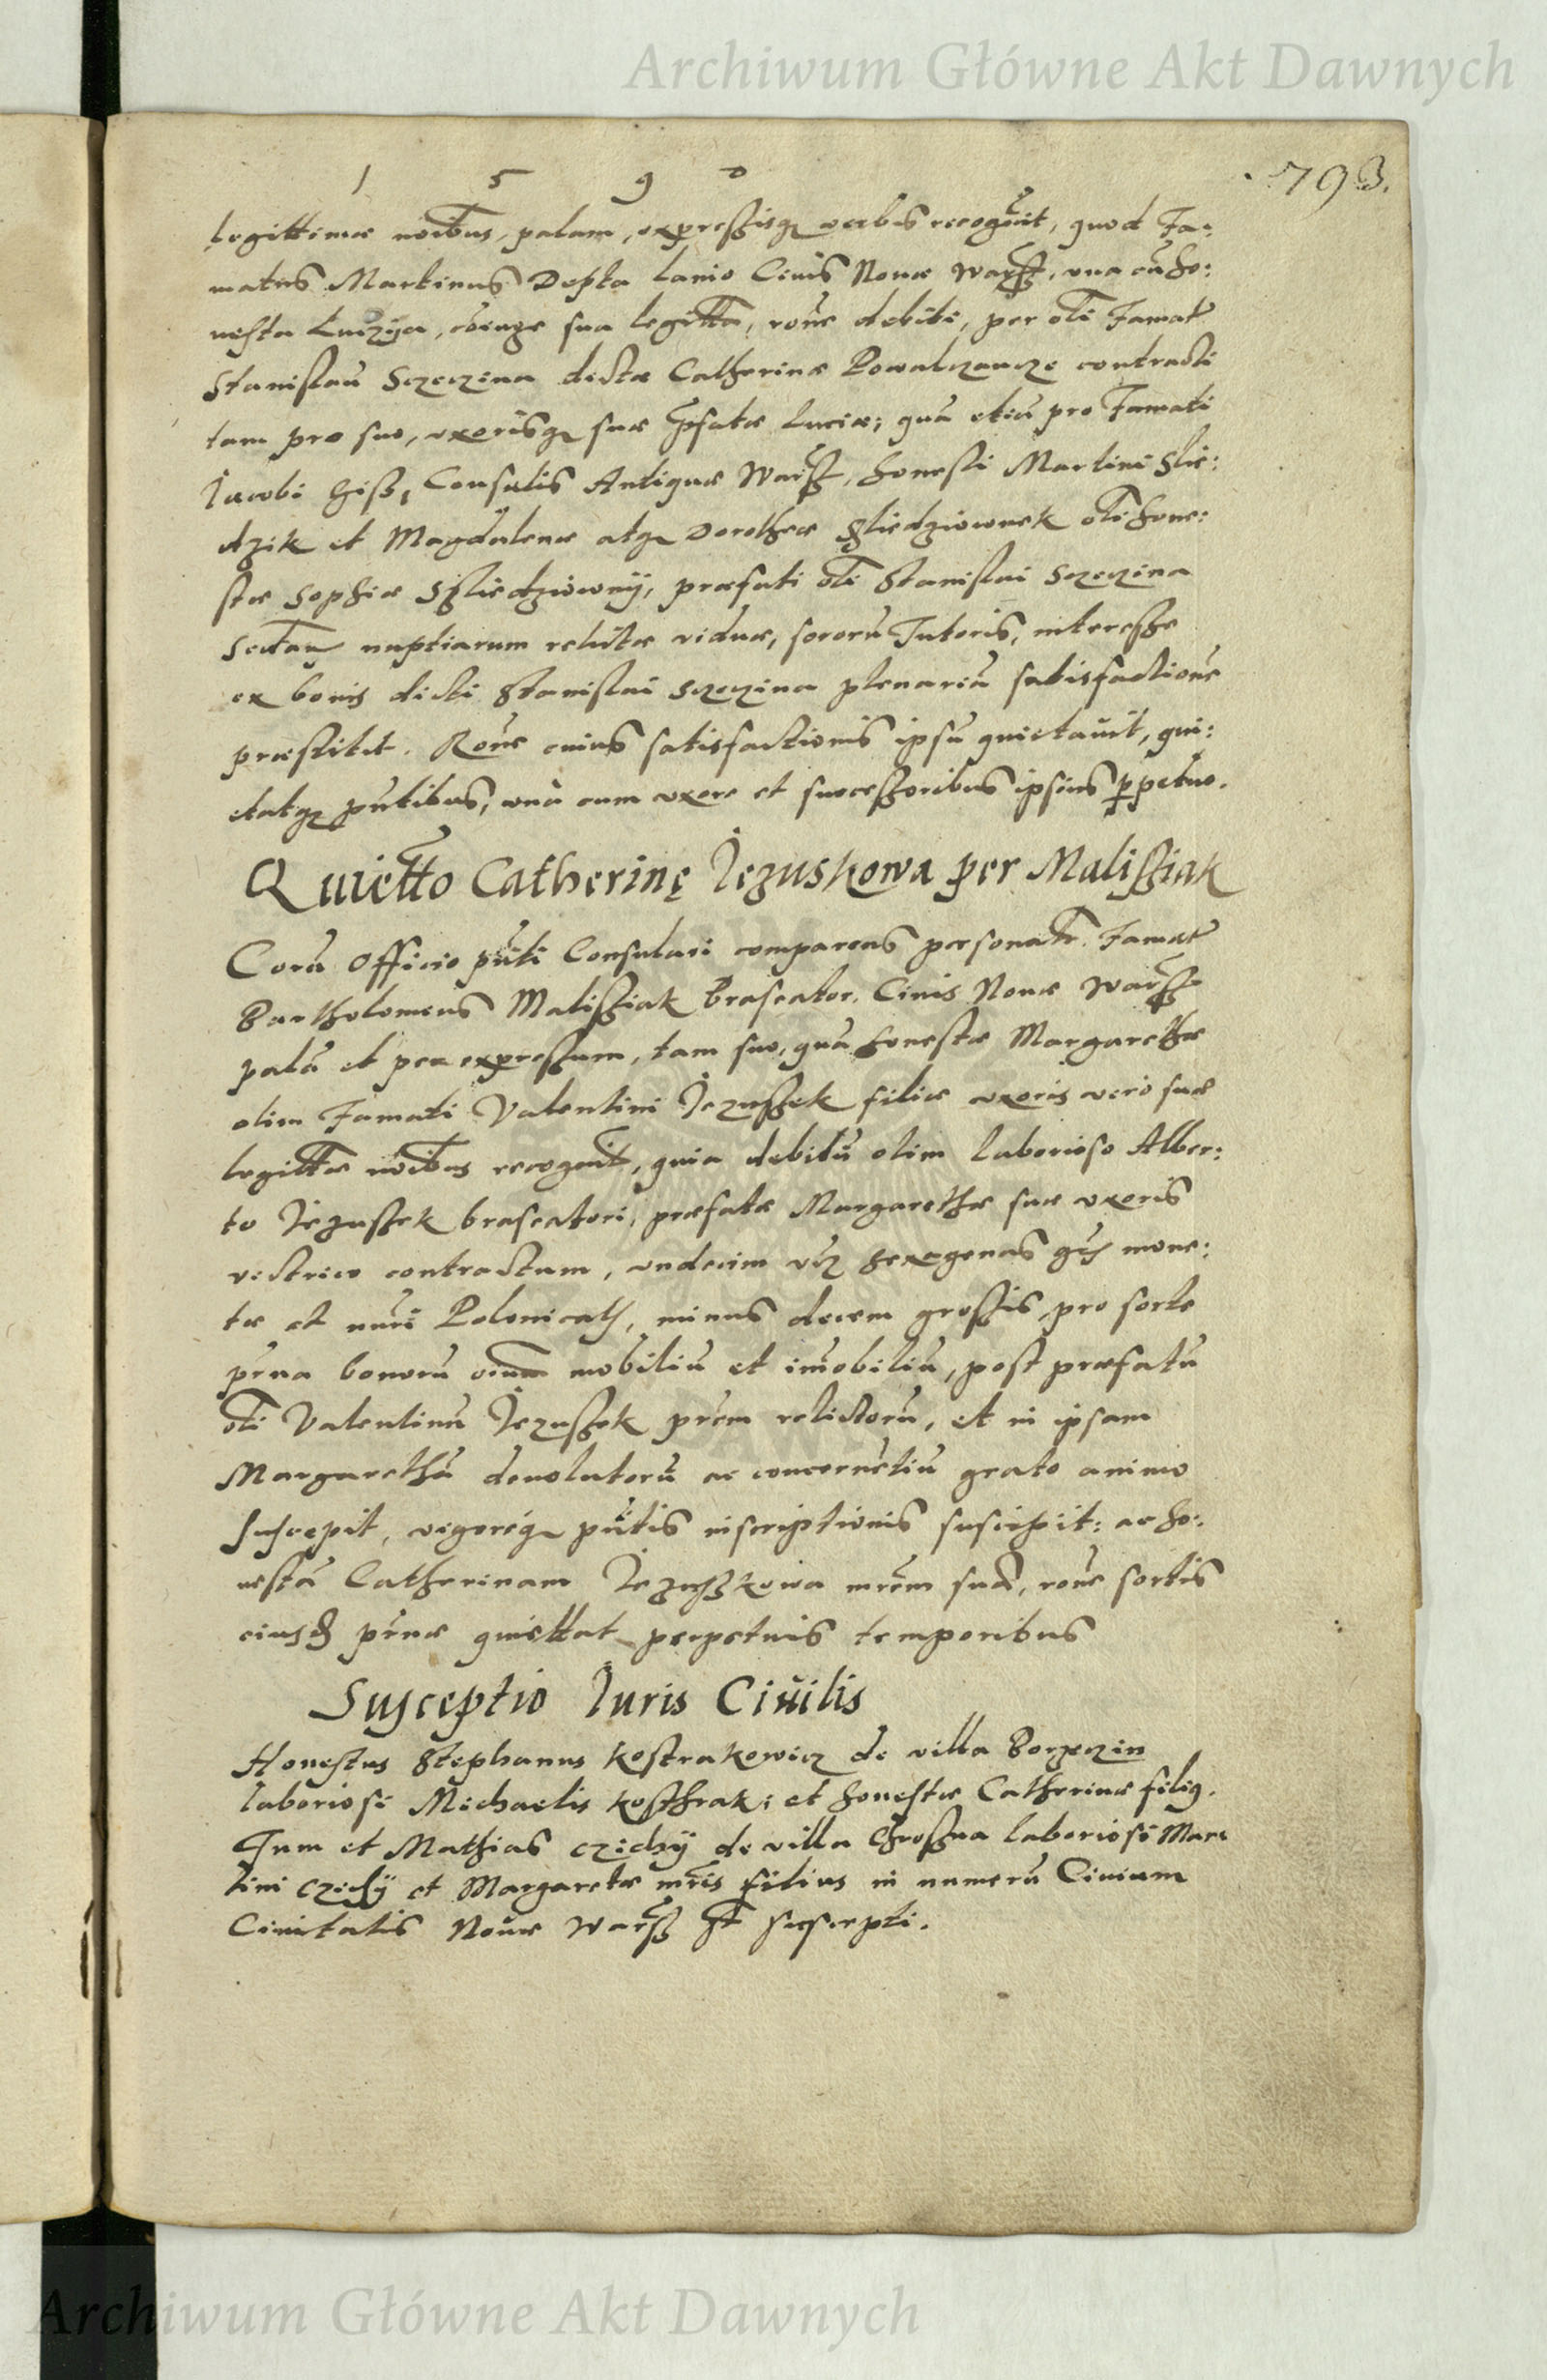 Archiwum Główne Akt Dawnych
1 5 9 0
793.
legittimæ noibus, palam, expressisq verbis recognuit, quod Fa:
matus Martinus Depta lanio Civis Nouæ Warß, vna cu ho:
nesta Luczya, coniuge sua legitta, rone debiti, per oli Famat
Stanislau Szczezina dictæ Catherinæ Powalczancze contracti
tam pro suo, vxorisq suæ pfatæ Luciæ; qua etia pro Famati
Jacobi Giß, Consulis Antiquæ Warß, honesti Martini
dzik et Magdalenæ atq Dorotheæ oli hone:
stæ Sophiæ præfati oli Stanislai Szczezina
nuptiarum relictæ viduæ, sororu Tutoris, interesse
ex bonis dicti Stanislai Szczezina plenaria satisfactione
præstitit. Rone cuius satisfactionis ipsu quietauit, qui:
etatq putibus, vna cum vxore et successoribus ipsius ppetuo.
Quietto Catherinę Jezuskowa per Malißiak
Cora Officio puti Consulari comparens personatr. Famat
Bartholomeus Malißiak braseator. Ciuis Nouæ Warß
pala et per expressum, tam suo, qua honestæ Margarethæ
olim Famati Valentini Jezußek filiæ vxoris vero suæ
legittæ noibus recognuit, quia debitu olim laborioso Alber:
to Jezußek braseatori, præfatæ Margarethæ suæ vxoris
victrico contractum, vndecim vcz sexagenas gch mone:
tæ et nuri Polonicalh, minus decem grossis, pro sorte
prna bonoru oium mobiliu et imobiliu, post præfatu
oli Valentinu Jezußek prem relictoru, et in ipsam
Margaretha deuolutoru ac concernetiu grato animo
suscepit, vigoreq putis inscriptionis suscipit: ac ho:
nesta Catherinam Jezußkowa mrem sua, rone sortis
eiusd prnæ quiettat perpetuis temporibus
Susceptio Iuris Ciuilis
Honestus Stephanus Kostrakowicz de villa Borzęczin
laboriosi Michaelis Kosthrak: et honestæ Catherinæ filig.
Tum et Mathias Czichy de villa Chroßna laboriosi Mar
tini Czichy et Margaretæ mris filius in numeru Ciuium
Ciuitatis Nouæ Warß st suscepti.
Archiwum Główne Akt Dawnych